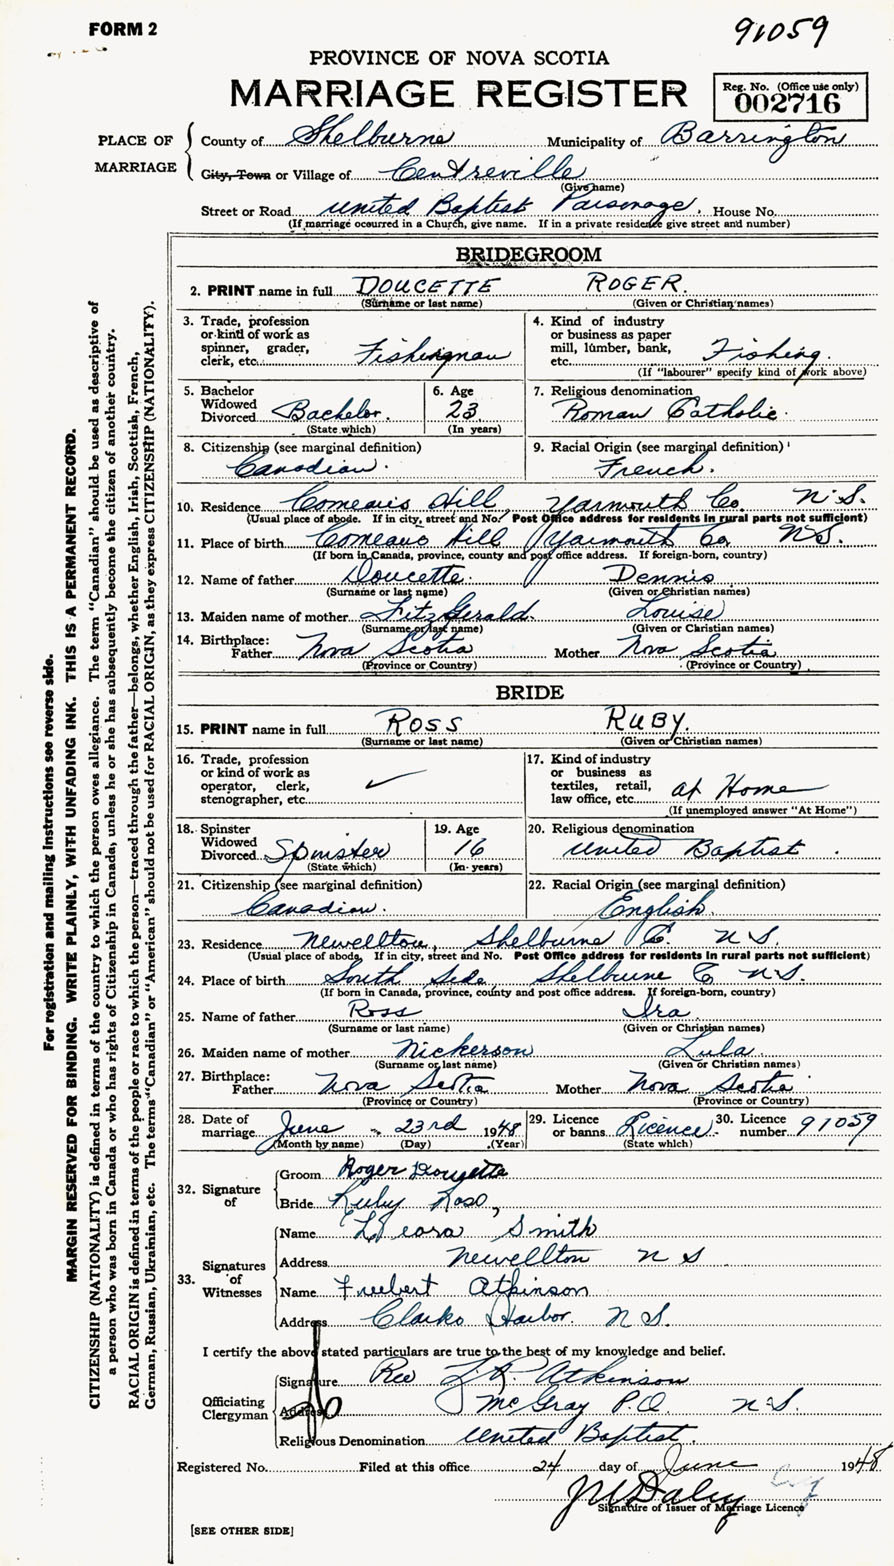 FORM 2
91059
PROVINCE OF NOVA SCOTIA
MARRIAGE REGISTER
Reg. No. (Office use only)
002716
PLACE OF MARRIAGE
County of Shelburne Municipality of Barrington
City, Town or Village of Centreville
(Give name)
Street or Road United Baptist Parsonage. House No.
(If marriage occurred in a Church, give name. If in a private residence give street and number)
BRIDEGROOM
2. PRINT name in full DOUCETTE ROGER.
(Surname or last name) (Given or Christian names)
3. Trade, profession or kind of work as spinner, grader, clerk, etc. Fisherman
4. Kind of industry or business as paper mill, lumber, bank, etc. Fishing.
(If "labourer" specify kind of work above)
5. Bachelor Widowed Divorced Bachelor.
(State which)
6. Age 23
(In years)
7. Religious denomination
Roman Catholic.
8. Citizenship (see marginal definition)
Canadian.
9. Racial Origin (see marginal definition)
French.
10. Residence Comeau's Hill, Yarmouth Co. N.S.
(Usual place of abode. If in city, street and No. Post Office address for residents in rural parts not sufficient)
11. Place of birth Comeau's Hill Yarmouth Co N.S.
(If born in Canada, province, county and post office address. If foreign-born, country)
12. Name of father Doucette. Dennis
(Surname or last name) (Given or Christian names)
13. Maiden name of mother FitzGerald. Louise
(Surname or last name) (Given or Christian names)
14. Birthplace: Father Nova Scotia Mother Nova Scotia
(Province or Country) (Province or Country)
BRIDE
15. PRINT name in full ROSS RUBY.
(Surname or last name) (Given or Christian names)
16. Trade, profession or kind of work as operator, clerk, stenographer, etc. ✓
17. Kind of industry or business as textiles, retail, law office, etc. at Home
(If unemployed answer "At Home")
18. Spinster Widowed Divorced Spinster
(State which)
19. Age 16
(In years)
20. Religious denomination
United Baptist.
21. Citizenship (see marginal definition)
Canadian.
22. Racial Origin (see marginal definition)
English.
23. Residence Newellton, Shelburne C. N.S.
(Usual place of abode. If in city, street and No. Post Office address for residents in rural parts not sufficient)
24. Place of birth South Side Shelburne C N.S.
(If born in Canada, province, county and post office address. If foreign-born, country)
25. Name of father Ross Ira
(Surname or last name) (Given or Christian names)
26. Maiden name of mother Nickerson Lula
(Surname or last name) (Given or Christian names)
27. Birthplace: Father Nova Scotia Mother Nova Scotia
(Province or Country) (Province or Country)
28. Date of marriage June 23rd 1948
(Month by name) (Day) (Year)
29. Licence or banns Licence
(State which)
30. Licence number 91059
32. Signature of
Groom Roger Doucette
Bride Ruby Ross,
33. Signatures of Witnesses
Name Smith
Address Newellton N S
Name Atkinson
Address Clarks Harbor. N S.
I certify the above stated particulars are true to the best of my knowledge and belief.
Officiating Clergyman
Signature Rev Atkinson
Address McGray P.O. N.S.
Religious Denomination United Baptist.
Registered No. Filed at this office 24 day of June 1948
Daley
Signature of Issuer of Marriage Licence
[SEE OTHER SIDE]
For registration and mailing instructions see reverse side.
MARGIN RESERVED FOR BINDING. WRITE PLAINLY, WITH UNFADING INK. THIS IS A PERMANENT RECORD.
CITIZENSHIP (NATIONALITY) is defined in terms of the country to which the person owes allegiance. The term "Canadian" should be used as descriptive of
a person who was born in Canada or who has rights of Citizenship in Canada, unless he or she has subsequently become the citizen of another country.
RACIAL ORIGIN is defined in terms of the people or race to which the person—traced through the father—belongs, whether English, Irish, Scottish, French,
German, Russian, Ukrainian, etc. The terms "Canadian" or "American" should not be used for RACIAL ORIGIN, as they express CITIZENSHIP (NATIONALITY).